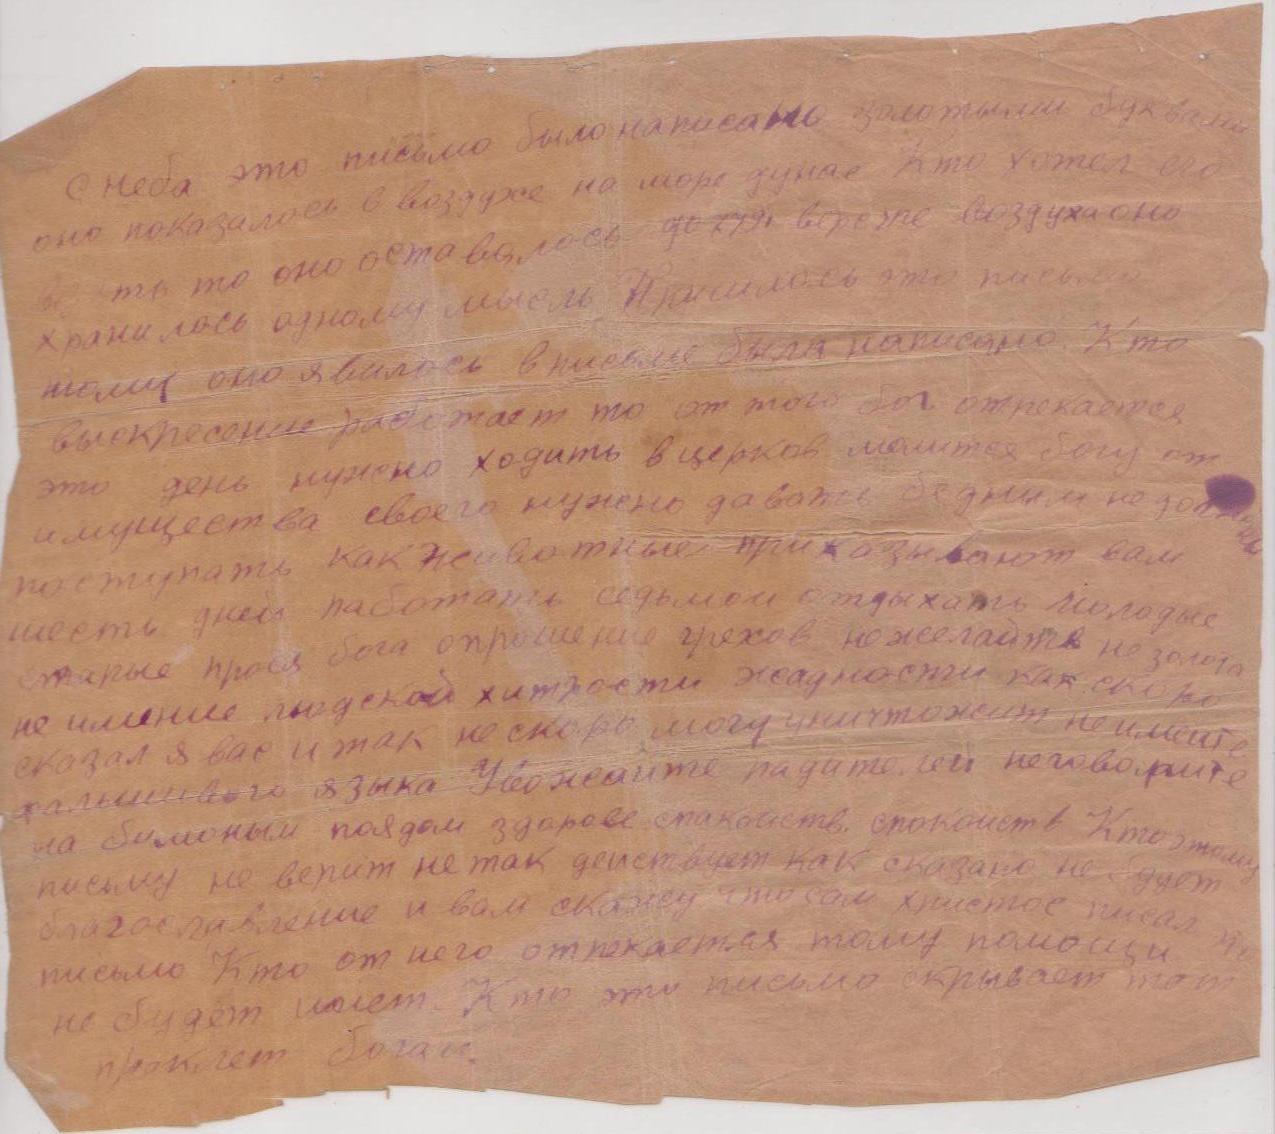 С неба это письмо было написано золотыми буквами
оно показалось в воздухе на море дунае Кто хотел его
то оно оставалось воздуха оно
хранилось одному мысль это письмо
тому оно явилось в письме была написано. Кто
выскресение работает то от того бог отрекается
это день нужно ходить в церков молится богу от
имущества своего нужно давать бедным не
поступать как животные приказывают вам
шесть дней работать седьмой отдыхать Молодые
старые прося бога опрошение грехов не желайте не золота
не имение людской хитрости жадности как скоро
сказал я вас и так не скоро могу уничтожит не имейте
фальшивого языка Уважайте радителей неговорите
на здорове спакойств. спокойств Кто этому
письму не верит не так действует как сказано не будет
благославление и вам скажу что сам христос писал это
письмо Кто от него отрекается тому помощи
не будет Кто это письмо скрывает тот
проклет богам.